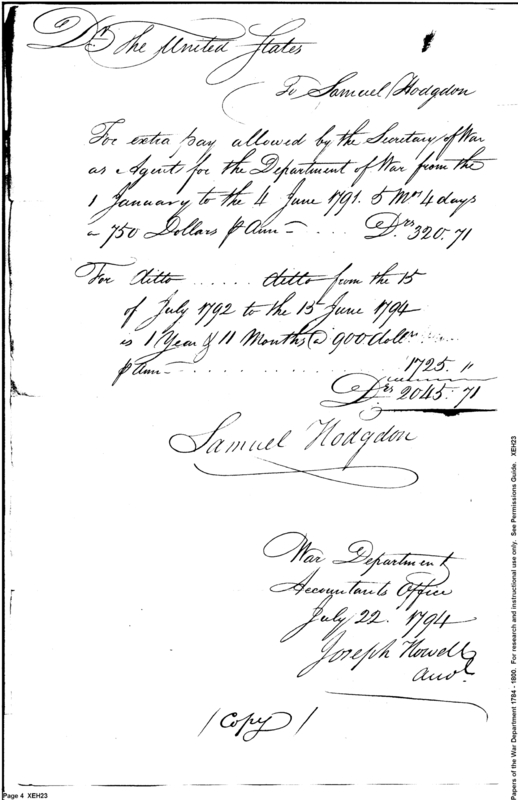 Dr. The United States
To Samuel Hodgdon
For extra pay allowed by the Secretary of War
as Agents for the Department of War from the
1 January to the 4 June 1791. 5 Mos 4 days
a 750 Dollars ⅌ Ann — . . . Drs. 320. 71
For ditto . . . . . ditto from the 15
of July 1792 to the 15 June 1794
is 1 Year & 11 Months @ 900 doll
⅌ Ann — . . . . . . . . . . . . 1725. "
Drs 2045. 71
Samuel Hodgdon
War Department
Accountants Office
July 22. 1794
Joseph Howell
(Copy)
Page 4 XEH23
Papers of the War Department 1784 - 1800. For research and instructional use only. See Permissions Guide. XEH23